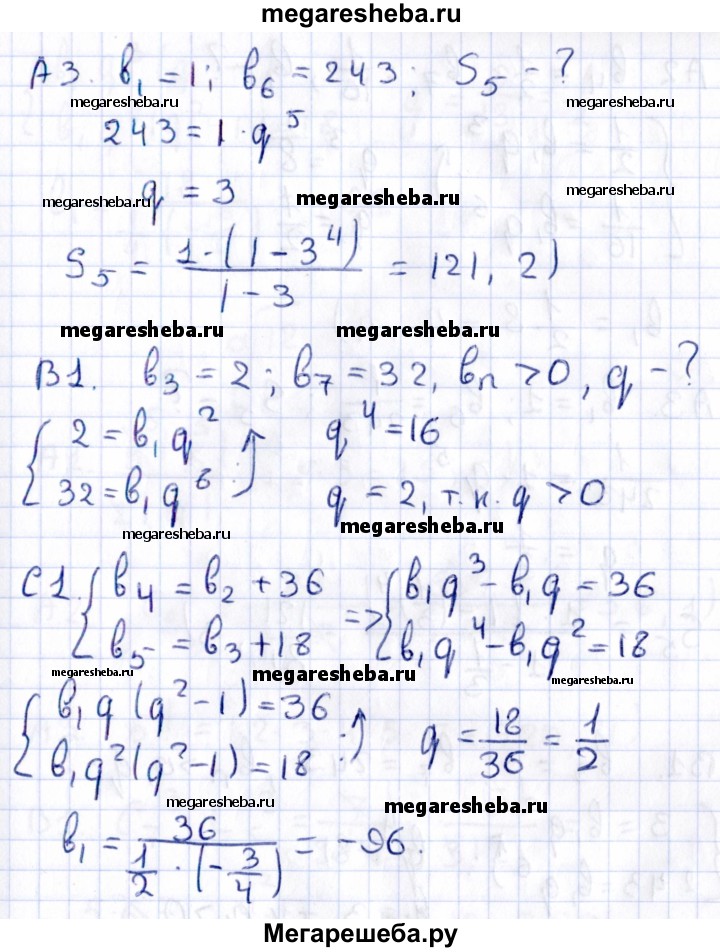 megaresheba.ru
A3. b₁ = 1; b₆ = 243; S₅ - ?
megaresheba.ru megaresheba.ru
243 = 1 · q⁵
megaresheba.ru megaresheba.ru megaresheba.ru
q = 3
S₅ = (1·(1 - 3⁴))/(1 - 3) = 121, 2)
megaresheba.ru megaresheba.ru
B1. b₃ = 2; b₇ = 32, bₙ > 0, q - ?
{ 2 = b₁q² q⁴ = 16
32 = b₁q⁶ :) q = 2, т.к. q > 0
megaresheba.ru megaresheba.ru
C1. { b₄ = b₂ + 36 => { b₁q³ - b₁q = 36
b₅ = b₃ + 18 b₁q⁴ - b₁q² = 18
megaresheba.ru megaresheba.ru megaresheba.ru
{ b₁q (q² - 1) = 36
b₁q² (q² - 1) = 18 :) q = 18/36 = 1/2
megaresheba.ru megaresheba.ru
b₁ = 36/(1/2 · (-3/4)) = -96.
Мегарешеба.ру